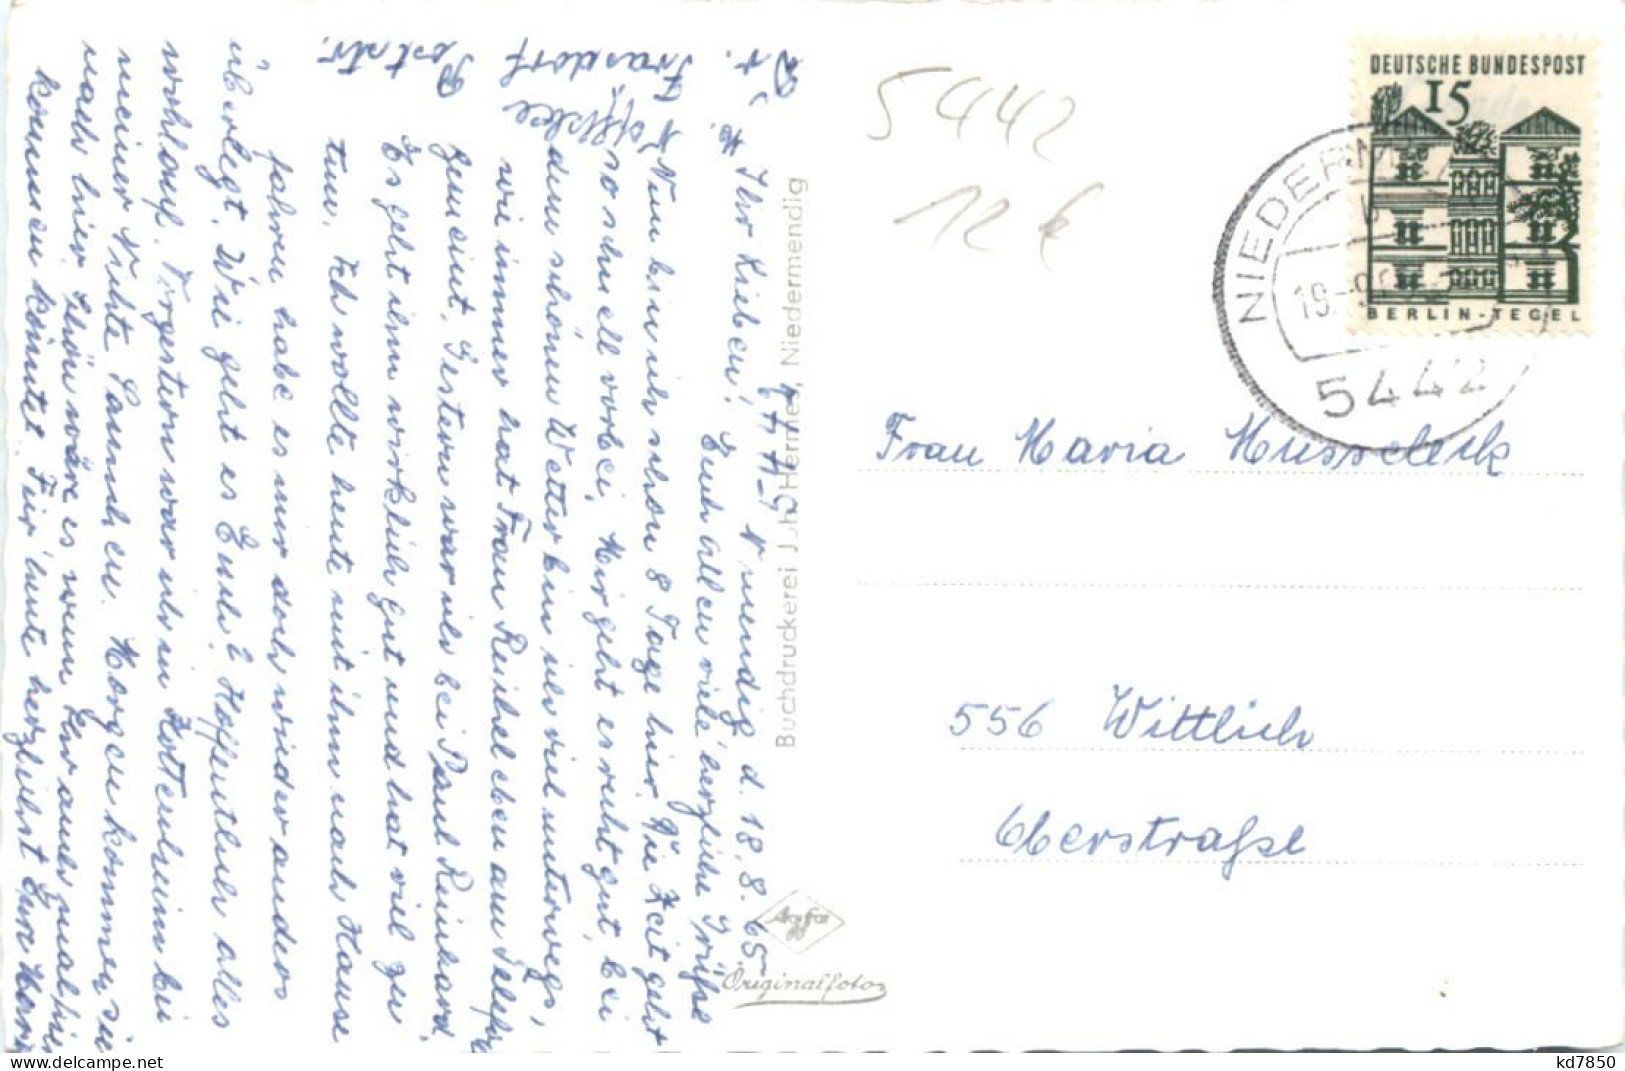 DEUTSCHE BUNDESPOST
15
BERLIN-TEGEL
NIEDERM
19.
5442
5442
12 €
Frau Maria
556 Wittlich
Oberstraße
Buchdruckerei Joh. Hermes, Niedermendig
Agfa
Originalfoto
N'mendig d. 18.8.65
Ihr Lieben! Euch allen viele herzliche Grüße
Nun bin ich schon 8 Tage hier. Die Zeit geht
so schnell vorbei. Mir geht es recht gut, bei
dem schönen Wetter bin ich viel unterwegs,
wie immer hat Frau Reichel eben am Telefon
gemeint. Gestern war ich bei Paul Reinhard.
Es geht ihm wirklich gut und hat viel zu
tun. Ich wollte heute mit ihm nach Hause
fahren habe es mir doch wieder anders
überlegt. Wie geht es Euch? Hoffentlich alles
wohlauf. Vorgestern war ich in Kottenheim bei
meiner Nichte Lannchen. Morgen kommen sie
nach hier. Schön wäre es wenn Ihr auch mal hier
kommen könntet. Für heute herzlichst Eure
delcampe.net
kd7850